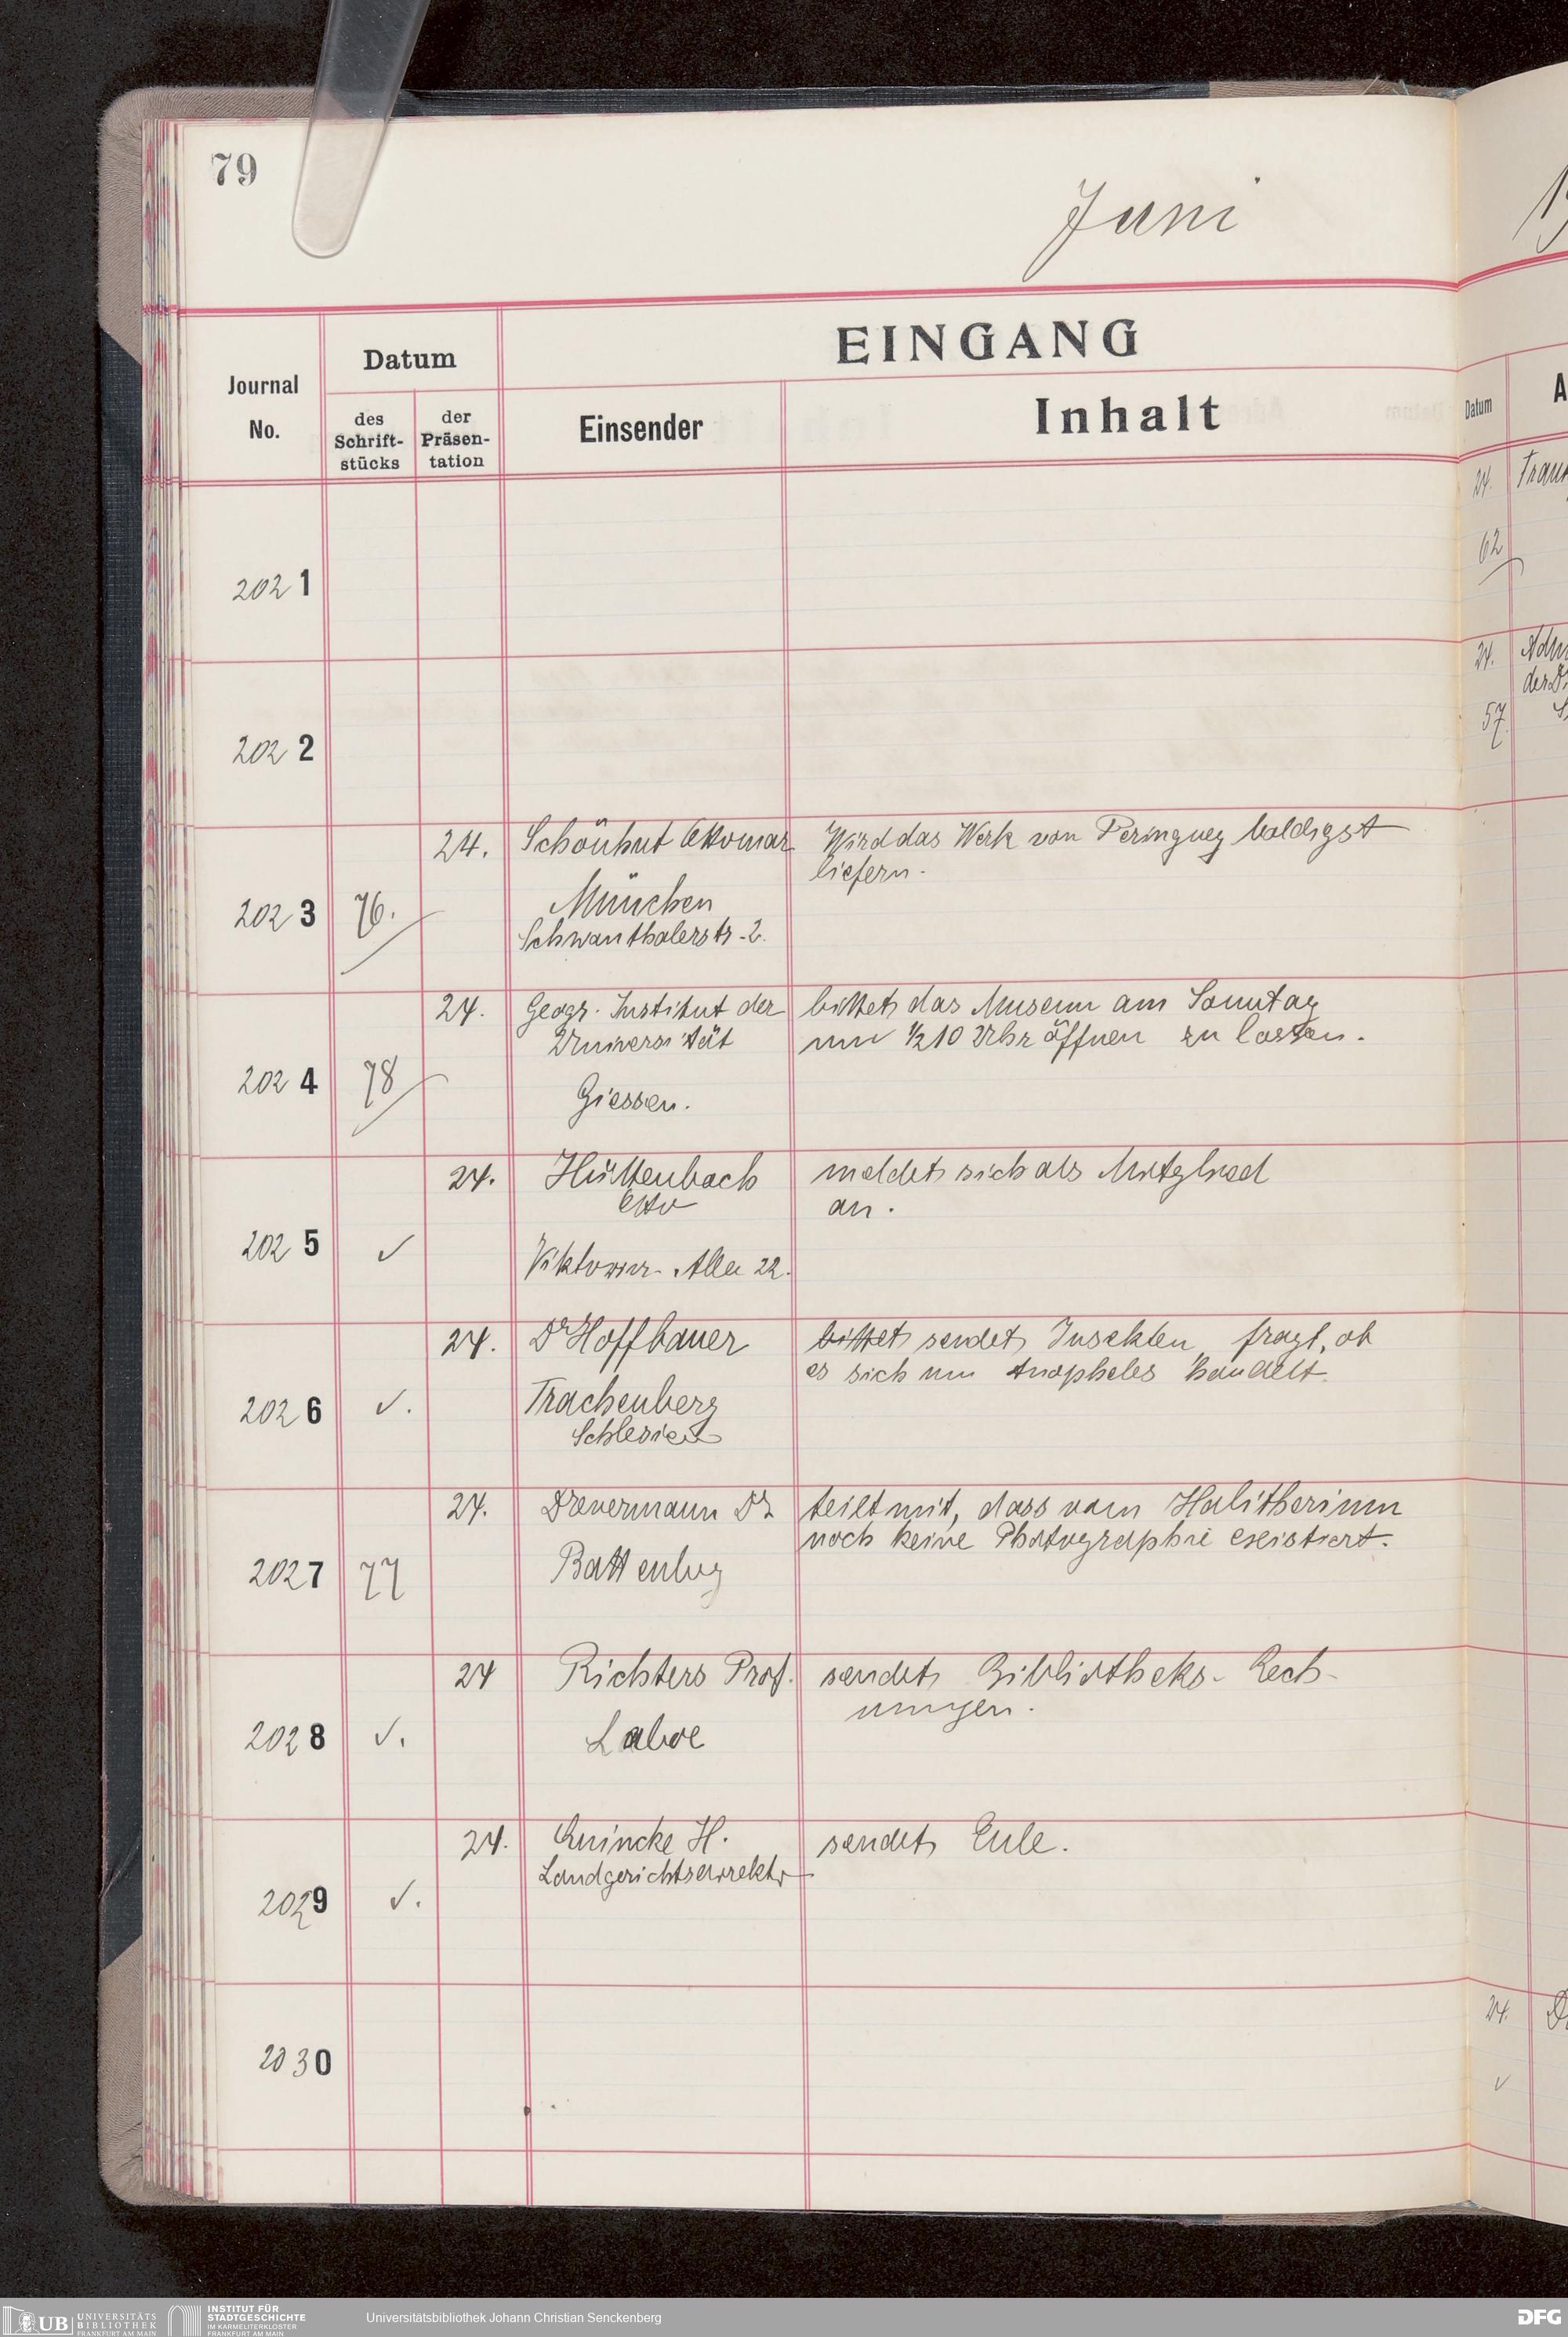 79
Juni
Journal
No.
Datum
des
Schrift-
stücks
der
Präsen-
tation
EINGANG
Einsender
Inhalt
Datum
A
2021
24.
62
2022
24.
57
2023
76.
24.
Schönhut Ottomar
München
Schwanthalerstr. 2.
Wird das Werk von Peringuey baldigst
liefern.
2024
78
24.
Geogr. Institut der
Universität
Giessen.
bittet das Museum am Sonntag
um ½10 Uhr öffnen zu lassen.
2025
✓
24.
Hüttenbach
Otto
Viktoria-Allee 22.
meldet sich als Mitglied
an.
2026
✓.
24.
Dr Hoffbauer
Trachenberg
Schlesien
bittet sendet Insekten, fragt, ob
es sich um Anopheles handelt.
2027
77
24.
Drevermann Dr
Battenberg
teilt mit, dass vom Halitherium
noch keine Photographie existiert.
2028
✓.
24
Richters Prof.
Laboe
sendet Bibliotheks-Rech-
nungen.
2029
✓.
24.
Quincke H.
Landgerichtsdirektor
sendet Eule.
2030
24.
✓
UB UNIVERSITÄTS
BIBLIOTHEK
FRANKFURT AM MAIN
INSTITUT FÜR
STADTGESCHICHTE
IM KARMELITERKLOSTER
FRANKFURT AM MAIN
Universitätsbibliothek Johann Christian Senckenberg
DFG